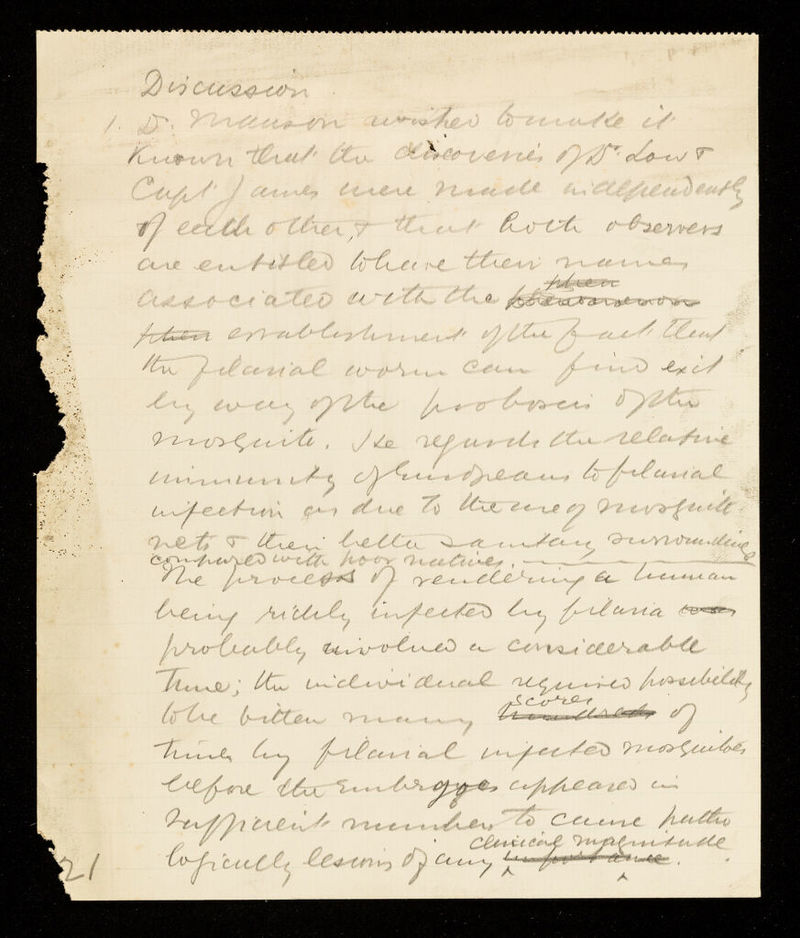 Discussion
1. Dr. Manson wished to make it
known that the discoveries of Dr. Low &
Capt James were made independently
of each other, & that both observers
are entitled to have their names
phen
associated with the phenomenon
then establishment of the fact that
the filarial worm can find exit
by way of the proboscis of the
mosquito. He regards the relative
immunity of Europeans to filarial
infection as due to the use of mosquito
nets & their better sanitary surroundings
compared with poor natives.
The process of rendering a human
being richly infected by filaria was
probably involved a considerable
time; the individual required possibility
scores
to be bitten many hundreds of
times by filarial infected mosquitoes
before the embryoes appeared in
sufficient numbers to cause patho
clinical magnitude
logically lesions of any importance.
21